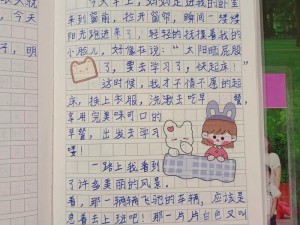 今天早上,妈妈走进我的卧室
来到窗前,拉开窗帘,瞬间一缕缕
阳光跑进来了,轻轻的抚摸着我的
小脸儿,好像在说:“太阳晒屁股
了,要去学习了,快起床!”
这时候,我才不情不愿的起
床,换上衣服,洗漱去吃早餐,
享用完美味可口的
早餐,出发去学习
喽
一路上我看到
了许多美丽的风景。
看,那一辆辆飞驰的车辆,应该是
急着去上班吧!那一片片白色又叫
今天
明